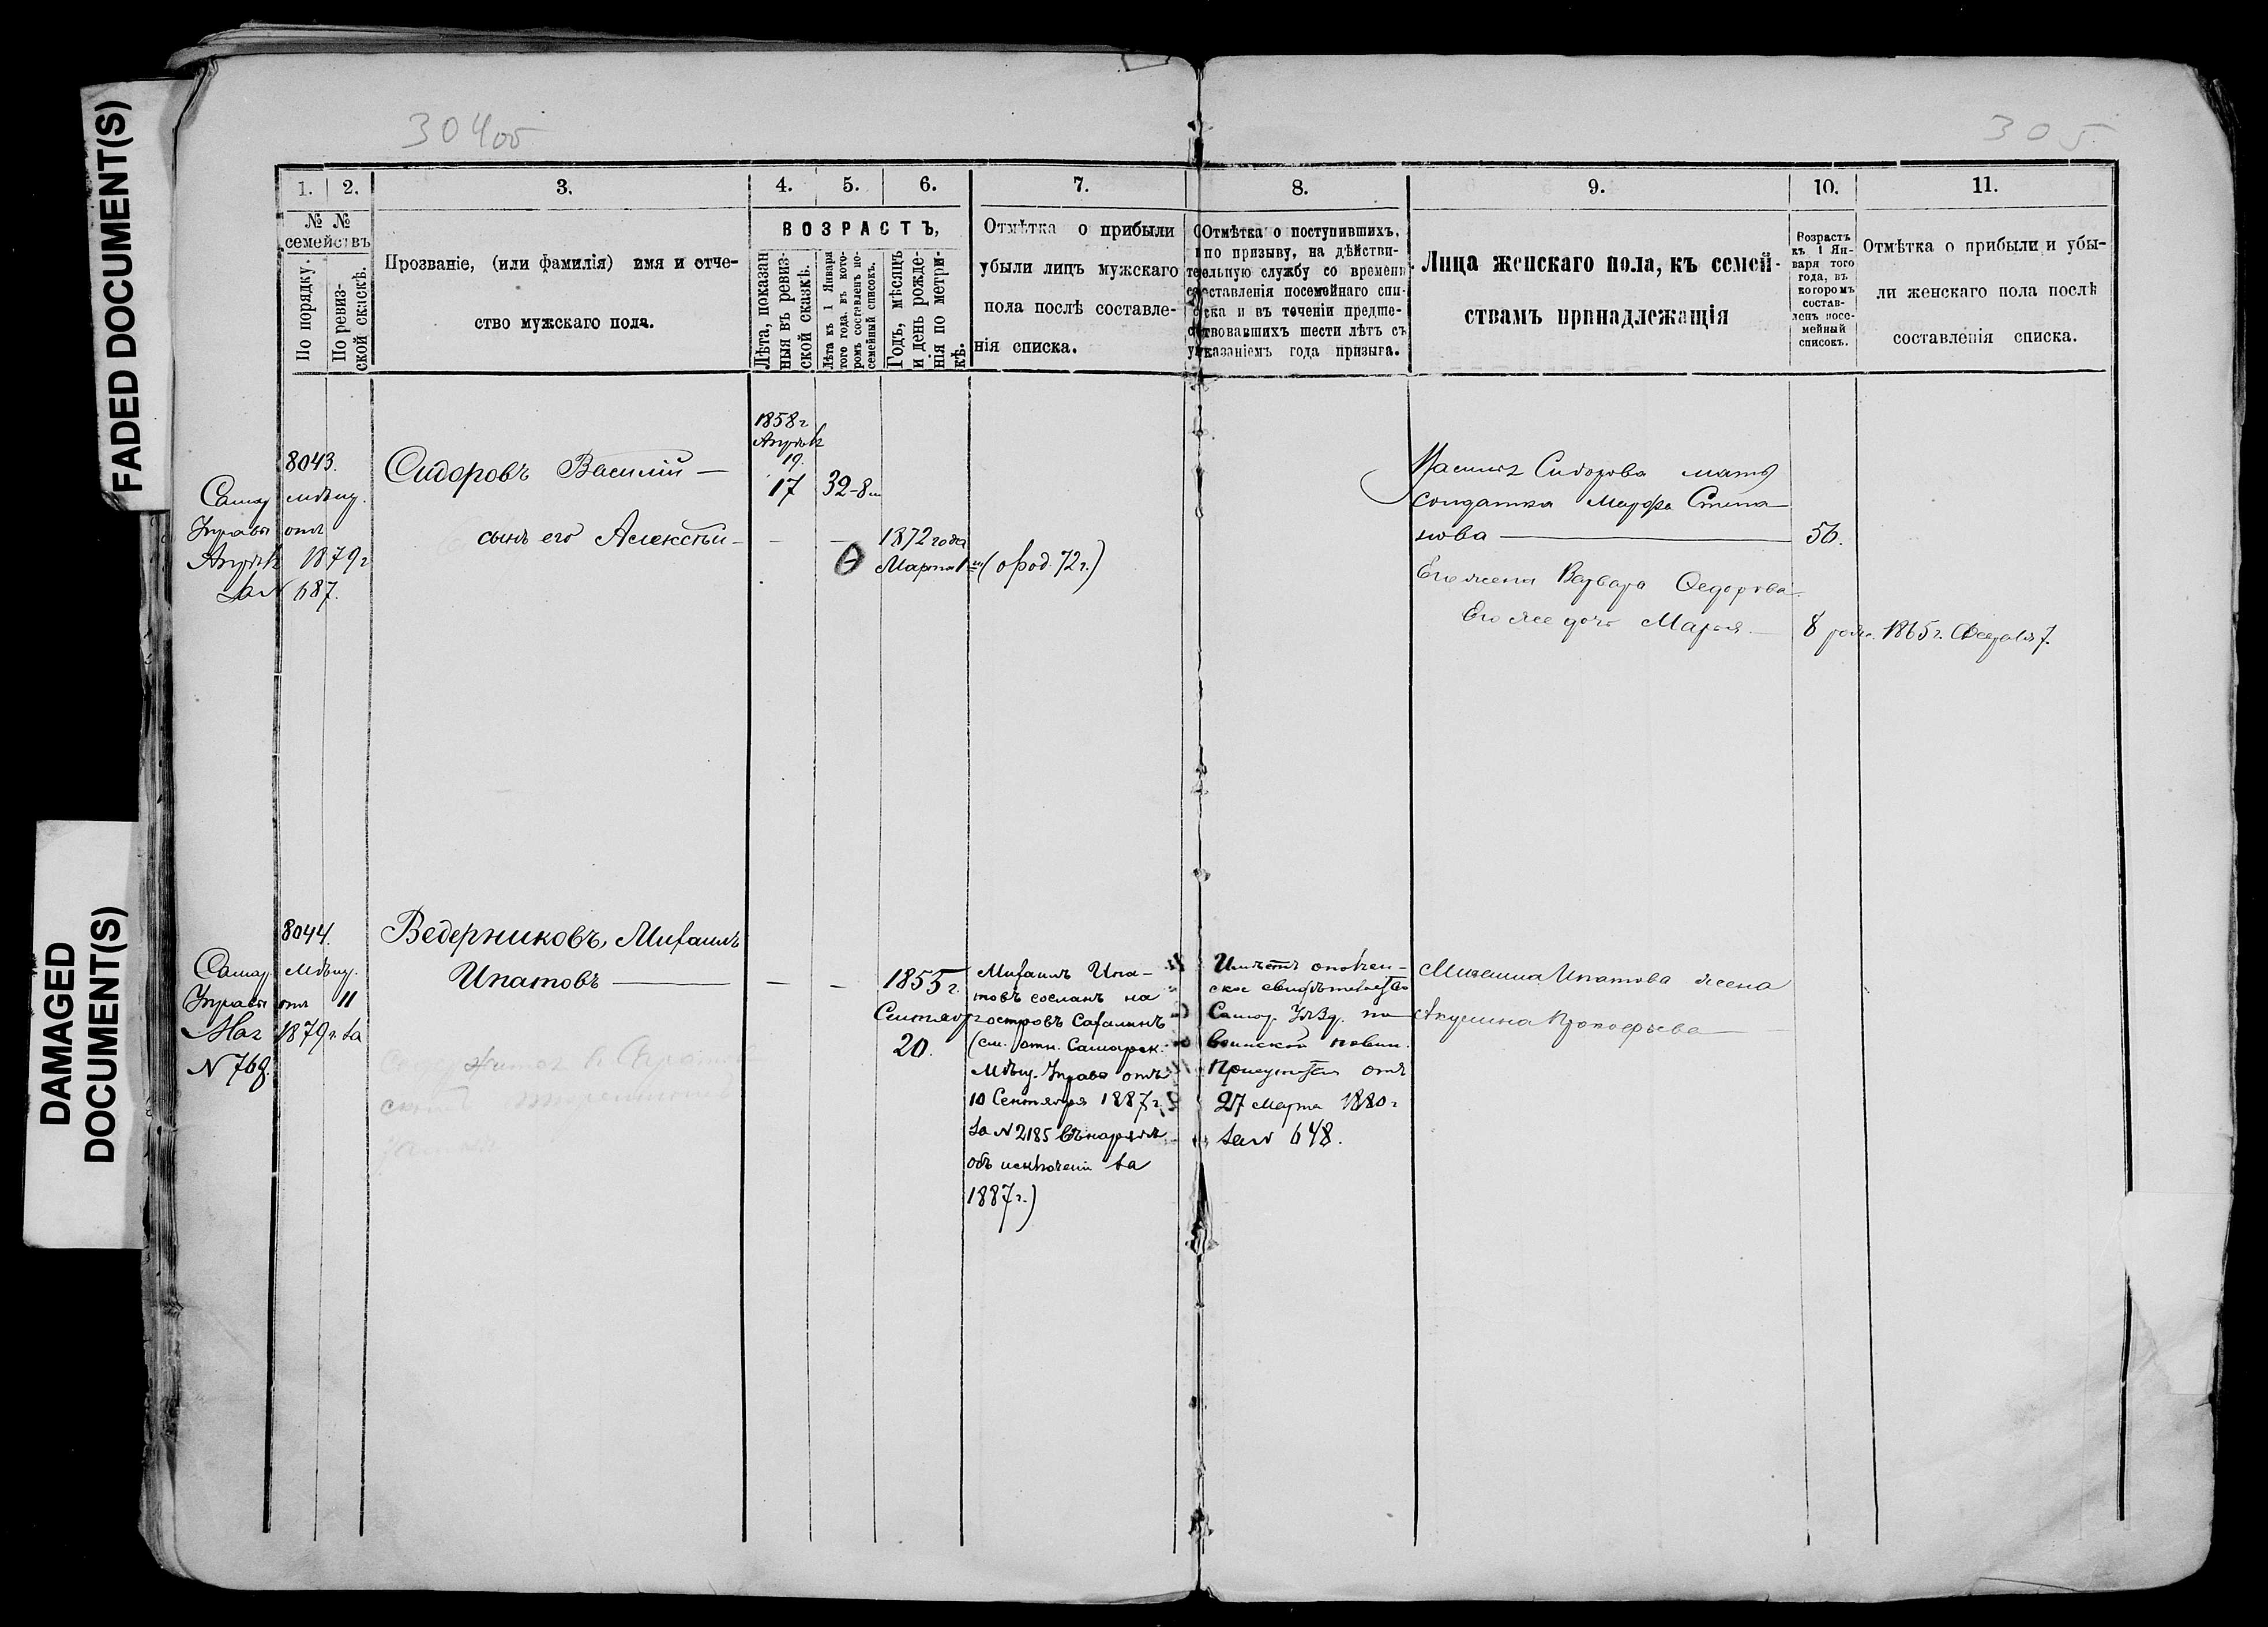 FADED DOCUMENT(S)
DAMAGED
DOCUMENT(S)
304об
305
1. 2. 3. 4. 5. 6. 7. 8. 9. 10. 11.
№ №
семействъ
По порядку.
По ревиз-
ской сказкѣ.
Прозваніе, (или фамилія) имя и отче-
ство мужскаго пола.
ВОЗРАСТЪ,
Лѣта, показан
ныя въ ревиз-
ской сказкѣ.
Лѣта къ 1 Января
того года, въ кото-
ромъ составленъ по-
семейный списокъ.
Годъ, мѣсяцъ
и день рожде-
нія по метри-
кѣ.
Отмѣтка о прибыли
убыли лицъ мужскаго
пола послѣ составле-
нія списка.
Отмѣтка о поступившихъ,
по призыву, на дѣйстви-
тельную службу со времени
составленія посемейнаго спи-
ска и въ теченіи предше-
ствовавшихъ шести лѣтъ съ
указаніемъ года призыва.
Лица женскаго пола, къ семей-
ствамъ принадлежащія
Возрастъ
къ 1 Ян-
варя того
года, въ
которомъ
состав-
ленъ посе-
мейный
списокъ.
Отмѣтка о прибыли и убы-
ли женскаго пола послѣ
составленія списка.
8043.
Самар мѣщ.
Управы отъ
Апрѣля 1879 г
за N 687.
Сидоровъ Василій —
сынъ его Алексѣй —
1858 г
Апрѣля
19.
17
32-8м
1872 года
Марта 1
(о род. 72 г.)
Василія Сидорова мать
солдатка Марфа Степа
нова — 56.
Его жена Варвара Федорова
Его же дочь Марья — 8 рожд. 1865 г. Февраля 7.
8044.
Самар. мѣщ.
Управы отъ 11
Мая 1879 г. за
N 768.
Ведерниковъ, Михаилъ
Ипатовъ —
1855 г.
Сентябр
20.
Михаилъ Ипа-
товъ сосланъ на
островъ Сахалинъ
(см. отн. Самарск.
Мѣщ. Управы отъ
10 Сентября 1887 г.
за N 2185 въ нарядѣ
объ исключеніи за
1887 г.)
Имѣетъ ополчен-
ское свидѣтельство
Самар. Уѣзд. по
воинской повин.
Присутствія отъ
27 Марта 1880 г
за N 648.
Михаила Ипатова жена
Акулина Прокофьева —